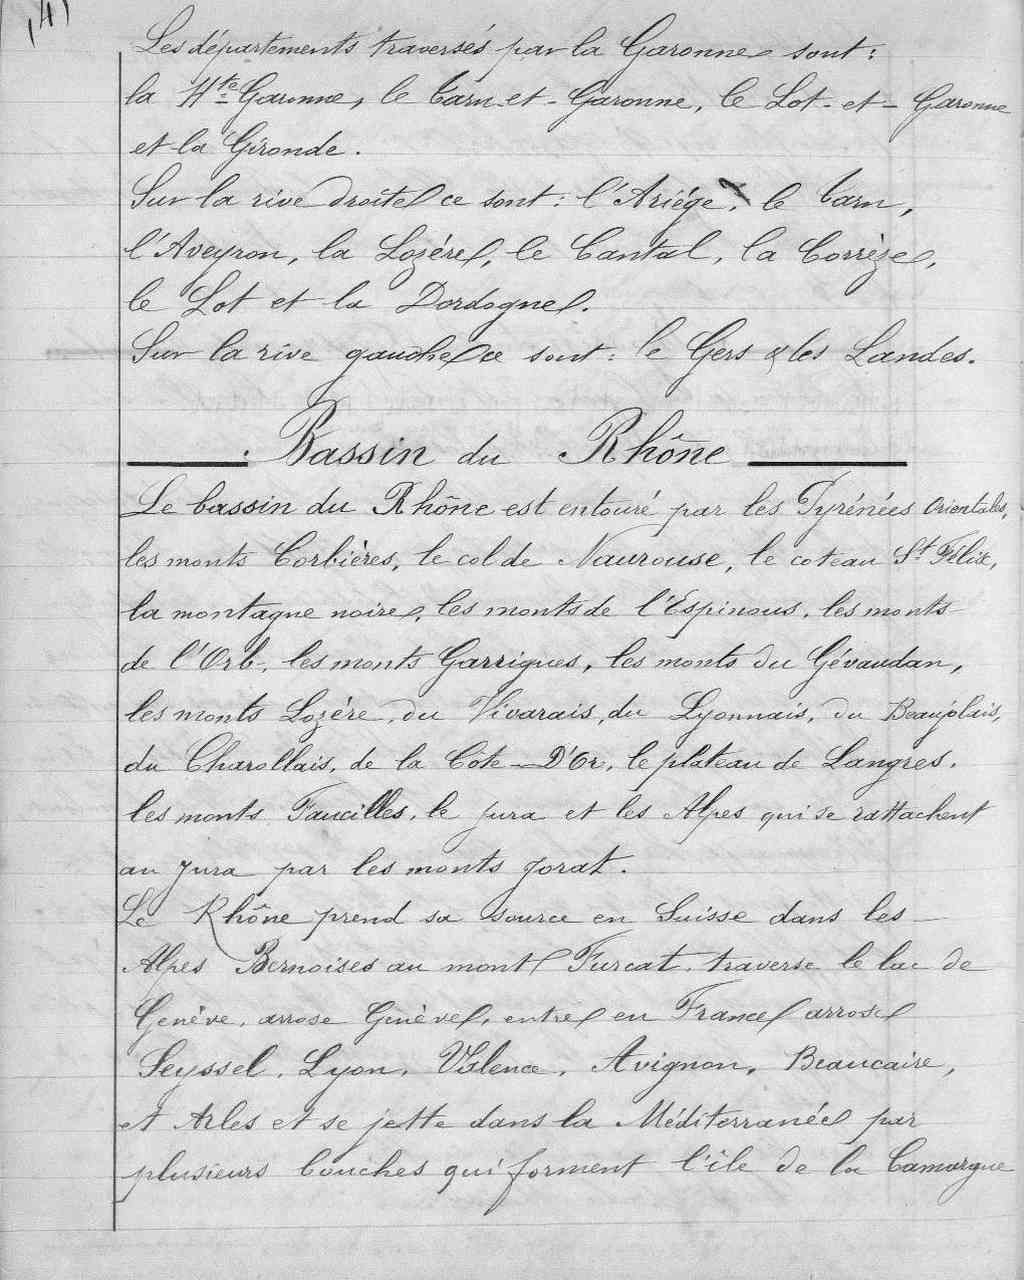 14)
Les départements traversés par la Garonne sont :
la Hte Garonne, le Tarn-et-Garonne, le Lot-et-Garonne
et la Gironde.
Sur la rive droite ce sont : l'Ariége, le Tarn,
l'Aveyron, la Lozére, le Cantal, la Corrèze,
le Lot et la Dordogne.
Sur la rive gauche ce sont : le Gers & les Landes.
Bassin du Rhône
Le bassin du Rhône est entouré par les Pyrénées Orientales,
les monts Corbières, le col de Naurouse, le coteau St Félix,
la montagne noire, les monts de l'Espinous, les monts
de l'Orb, les monts Garrigues, les monts du Gévaudan,
les monts Lozére, du Vivarais, du Lyonnais, du Beaujolais,
du Charollais, de la Côte-D'Or, le plateau de Langres,
les monts Faucilles, le Jura et les Alpes qui se rattachent
au Jura par les monts Jorat.
Le Rhône prend sa source en Suisse dans les
Alpes Bernoises au mont Furcat, traverse le lac de
Genève, arrose Genève, entre en France arrose
Seyssel, Lyon, Valence, Avignon, Beaucaire,
et Arles et se jette dans la Méditerranée par
plusieurs bouches qui forment l'île de la Camargue